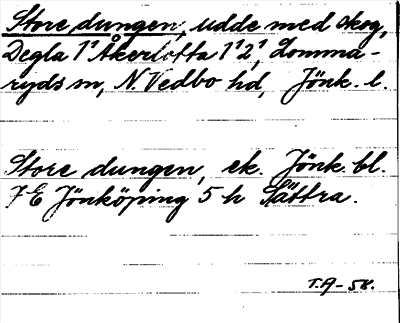 Store dungen, udde med skog,
Degla 1¹ Åkerlotta 1¹2¹, Lomma-
ryds sn, N. Vedbo hd, Jönk. l.
Store dungen, ek. Jönk. bl.
7 E Jönköping 5 h Sättra.
T.A-58.